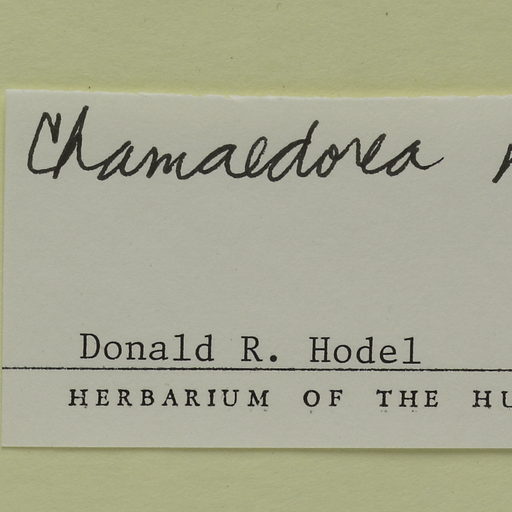 Chamaedorea
Donald R. Hodel
HERBARIUM OF THE HU